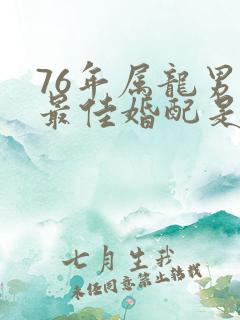 76年属龍男
最佳婚配是
七月生我
未经同意禁止转载